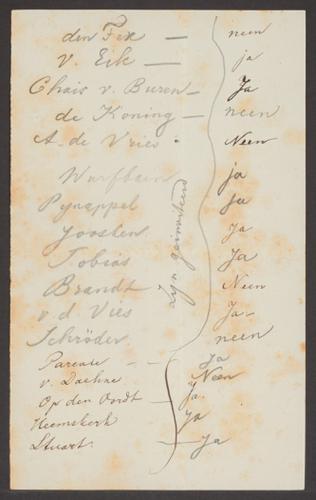 den Tex — neen
v. Eik — ja
Chais v. Buren — Ja
de Koning — neen
A. de Vries Neen
Wurfbain ja
Pynappel ja
Joosten Ja
Tobias Ja
Brandt Neen
v. d Vies Ja
Schröder neen
zyn geinviteerd
Parease — — Ja
v. Daehne Neen
Op den Oordt — Ja
Heemskerk Ja
Stuart. — Ja